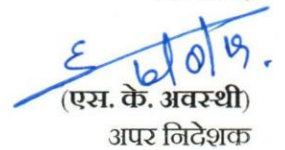 (एस. के. अवस्थी)
अपर निदेशक